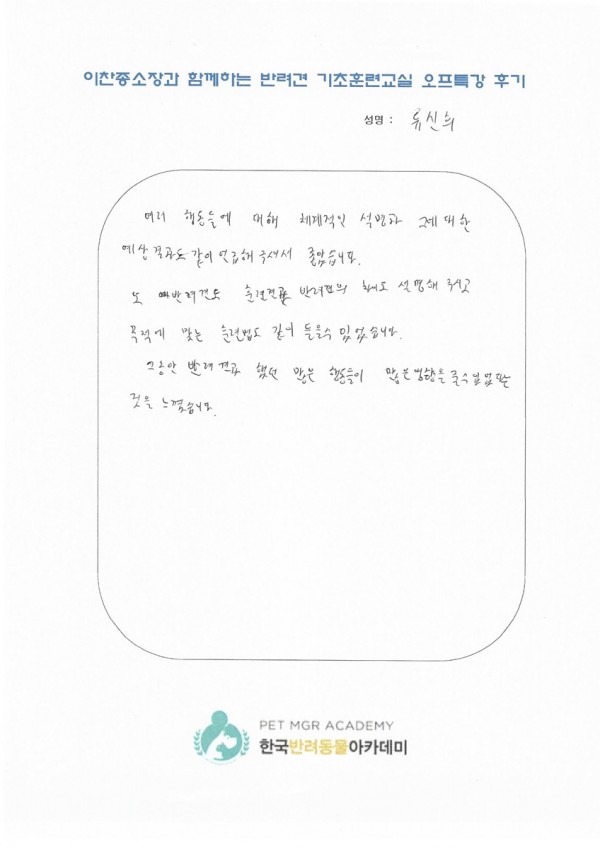 이찬종소장과 함께하는 반려견 기초훈련교실 오프특강 후기
성명 : 류신희
여러 행동들에 대해 체계적인 설명과 그에 대한
예상결과도 같이 언급해 주셔서 좋았습니다.
또 반려견도 훈련견과 반려견의 차이도 설명해 주시고
목적에 맞는 훈련법도 같이 들을수 있었습니다.
그동안 반려견과 했던 많은 행동들이 많은 영향을 줄수 있었다는
것을 느꼈습니다.
PET MGR ACADEMY
한국반려동물아카데미